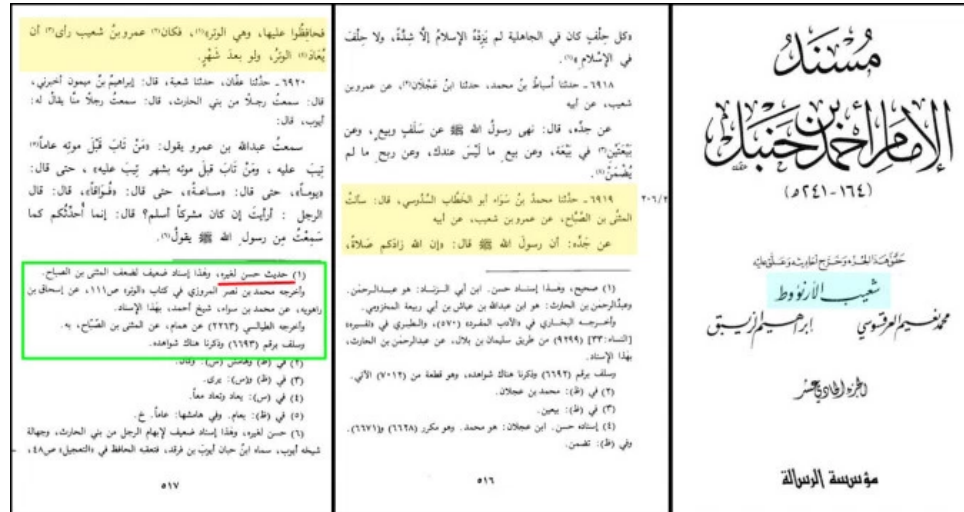 مُسْنَدُ
الإمَامِ أَحْمَدَ بْنِ حَنْبَلٍ
(١٦٤ - ٢٤١ هـ)
حَقَّقَ هَذَا الجُزْء وَخَرَّجَ أَحَادِيثَهُ وَعَلَّقَ عَلَيْهِ
شعيب الأرنؤوط
محمد نعيم العرقسوسي إبراهيم الزيبق
الجزء الحادي عشر
مؤسسة الرسالة
«كل حِلْفٍ كان في الجاهلية لم يَزِدْهُ الإسلامُ إلَّا شِدَّةً، ولا حِلْفَ
في الإسْلام»(١).
٦٩١٨ ـ حدثنا أسباطُ بنُ محمد، حدثنا ابنُ عَجْلان(٢)، عن عمرو بن
شعيب، عن أبيه
عن جدِّه، قال: نهى رسولُ الله ﷺ عن سَلَفٍ وبيعٍ، وعن
بَيْعَتَيْنِ(٣) في بَيْعَة، وعن بيعِ ما لَيْسَ عندك، وعن ربحِ ما لم
يُضْمَنْ(٤).
٢٠٦/٢ ٦٩١٩ ـ حدثنا محمدُ بنُ سَوَاء أبو الخَطَّاب السَّدُوسي، قال: سألتُ
المثنَّى بن الصَّبَّاح، عن عمرو بن شعيب، عن أبيه
عن جَدِّه: أن رسولَ الله ﷺ قال: «إن الله زادَكم صَلاةً،
(١) صحيح، وهذا إسناد حسن. ابن أبي الزناد: هو عبدالرحمن.
وعبدُالرحمٰن بن الحارث: هو ابن عبدالله بن عياش بن أبي ربيعة المخزومي.
وأخرجه البخاري في «الأدب المفرد» (٥٧٠)، والطبري في «تفسيره»
[النساء:٣٣] (٩٢٩٩) من طريق سليمان بن بلال، عن عبدالرحمٰن بن الحارث،
بهٰذا الإسناد.
وسلف برقم (٦٦٩٢) وذكرنا هناك شواهده، وهو قطعة من (٧٠١٢) الآتي.
(٢) في (ظ): محمد بن عجلان.
(٣) في (ظ): بيعين.
(٤) إسناده حسن. ابن عجلان: هو محمد. وهو مكرر (٦٦٢٨) و(٦٦٧١).
وفي (ظ): تضمن.
٥١٦
فحافِظُوا عليها، وهي الوتر»(١)، فكان(٢) عمرو بنُ شعيب رأى(٣) أن
يُعَادَ(٤) الوترُ، ولو بعدَ شَهْرٍ.
٦٩٢٠ ـ حدَّثنا عفَّان، حدثنا شعبة، قال: إبراهيمُ بنُ ميمون أخبرني،
قال: سمعتُ رجلًا من بني الحارث، قال: سمعتُ رجلًا منَّا يقالُ له:
أيوب، قال:
سمعتُ عبدالله بن عمرو يقول: «مَنْ تَابَ قَبْلَ موتِه عاماً(٥)
تِيبَ عليه، ومَنْ تَابَ قبلَ موته بشهر تِيبَ عليه»، حتى قال:
«يوماً»، حتى قال: «ساعةً»، حتى قال: «فُوَاقاً»، قال: قال
الرجل : أرأيتَ إن كان مشركاً أسلم؟ قال: إنما أُحدِّثُكم كما
سَمِعْتُ مِن رسول الله ﷺ يقولُ(٦).
(١) حديث حسن لغيره، وهٰذا إسناد ضعيف لضعف المثنى بن الصباح.
وأخرجه محمد بن نصر المروزي في كتاب «الوتر» ص١١١، عن إسحاق بن
راهويه، عن محمد بن سواء، شيخ أحمد، بهٰذا الإسناد.
وأخرجه الطيالسي (٢٢٦٣) عن همام، عن المثنى بن الصَّبَّاح، به.
وسلف برقم (٦٦٩٣) وذكرنا هناك شواهده.
(٢) في (ظ) وهامش (س): وكان.
(٣) في (ظ) و(س): يرى.
(٤) في (س): يعاد وتعاد معاً.
(٥) في (ظ): بعام. وفي هامشها: عاماً. خ.
(٦) حسن لغيره، وهٰذا إسناد ضعيف لإبهام الرجل من بني الحارث، وجهالة
شيخه أيوب، سماه ابنُ حبان أيوبَ بن فرقد، فتعقبه الحافظ في «التعجيل» ص٤٨،
٥١٧